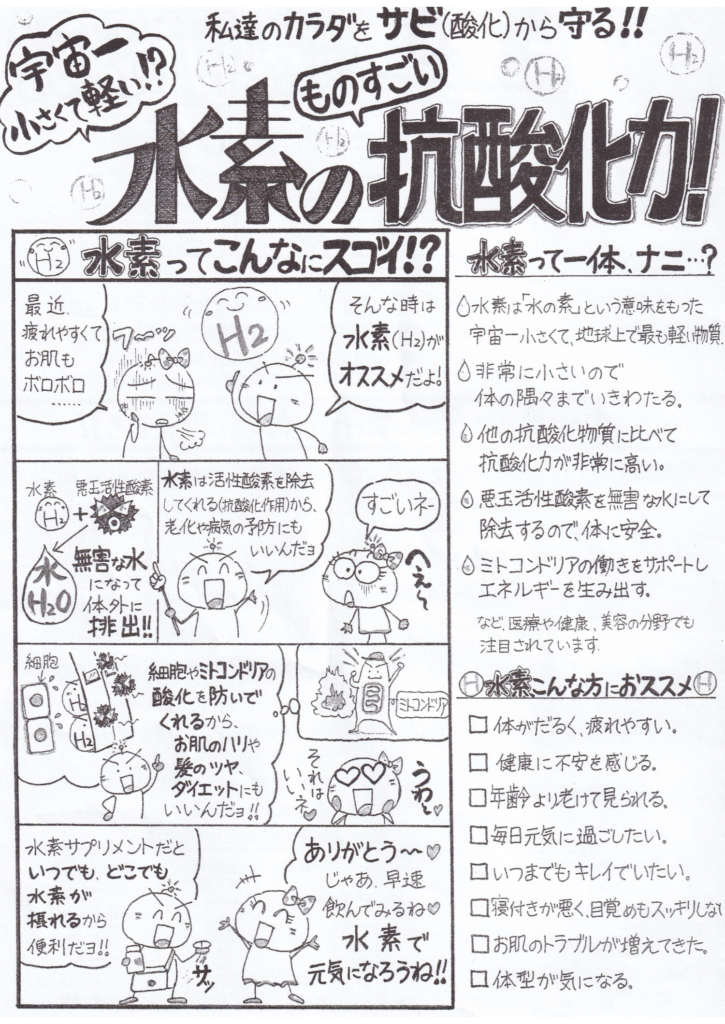 私達のカラダをサビ(酸化)から守る!!
宇宙一
小さくて軽い!?
ものすごい
水素の抗酸化力!
H2
H2
H2
H2
H2
H2
水素ってこんなにスゴイ!?
最近
疲れやすくて
お肌も
ボロボロ
……
フ〜ッ
H2
そんな時は
水素(H2)が
オススメだよ!
水素
H2
+
悪玉活性酸素
水
H2O
無害な水
になって
体外に
排出!!
水素は活性酸素を除去
してくれる(抗酸化作用)から、
老化や病気の予防にも
いいんだヨ
すごいネー
へぇ〜
細胞
H2
H2
細胞やミトコンドリアの
酸化を防いで
くれるから、
お肌のハリや
髪のツヤ、
ダイエットにも
いいんだヨ!!
ミトコンドリア
それは
いいネ♥
うわ〜♥
水素サプリメントだと
いつでも、どこでも
水素が
摂れるから
便利だヨ!!
サッ
ありがとう〜♥
じゃあ、早速
飲んでみるね♥
水素で
元気になろうね!!
水素って一体、ナニ…?
水素は「水の素」という意味をもった
宇宙一小さくて、地球上で最も軽い物質
非常に小さいので
体の隅々までいきわたる。
他の抗酸化物質に比べて
抗酸化力が非常に高い。
悪玉活性酸素を無害な水にして
除去するので、体に安全。
ミトコンドリアの働きをサポートし
エネルギーを生み出す。
など、医療や健康、美容の分野でも
注目されています
H水素こんな方におススメH
□体がだるく、疲れやすい。
□健康に不安を感じる。
□年齢より老けて見られる。
□毎日元気に過ごしたい。
□いつまでもキレイでいたい。
□寝付きが悪く、目覚めもスッキリしな
□お肌のトラブルが増えてきた。
□体型が気になる。